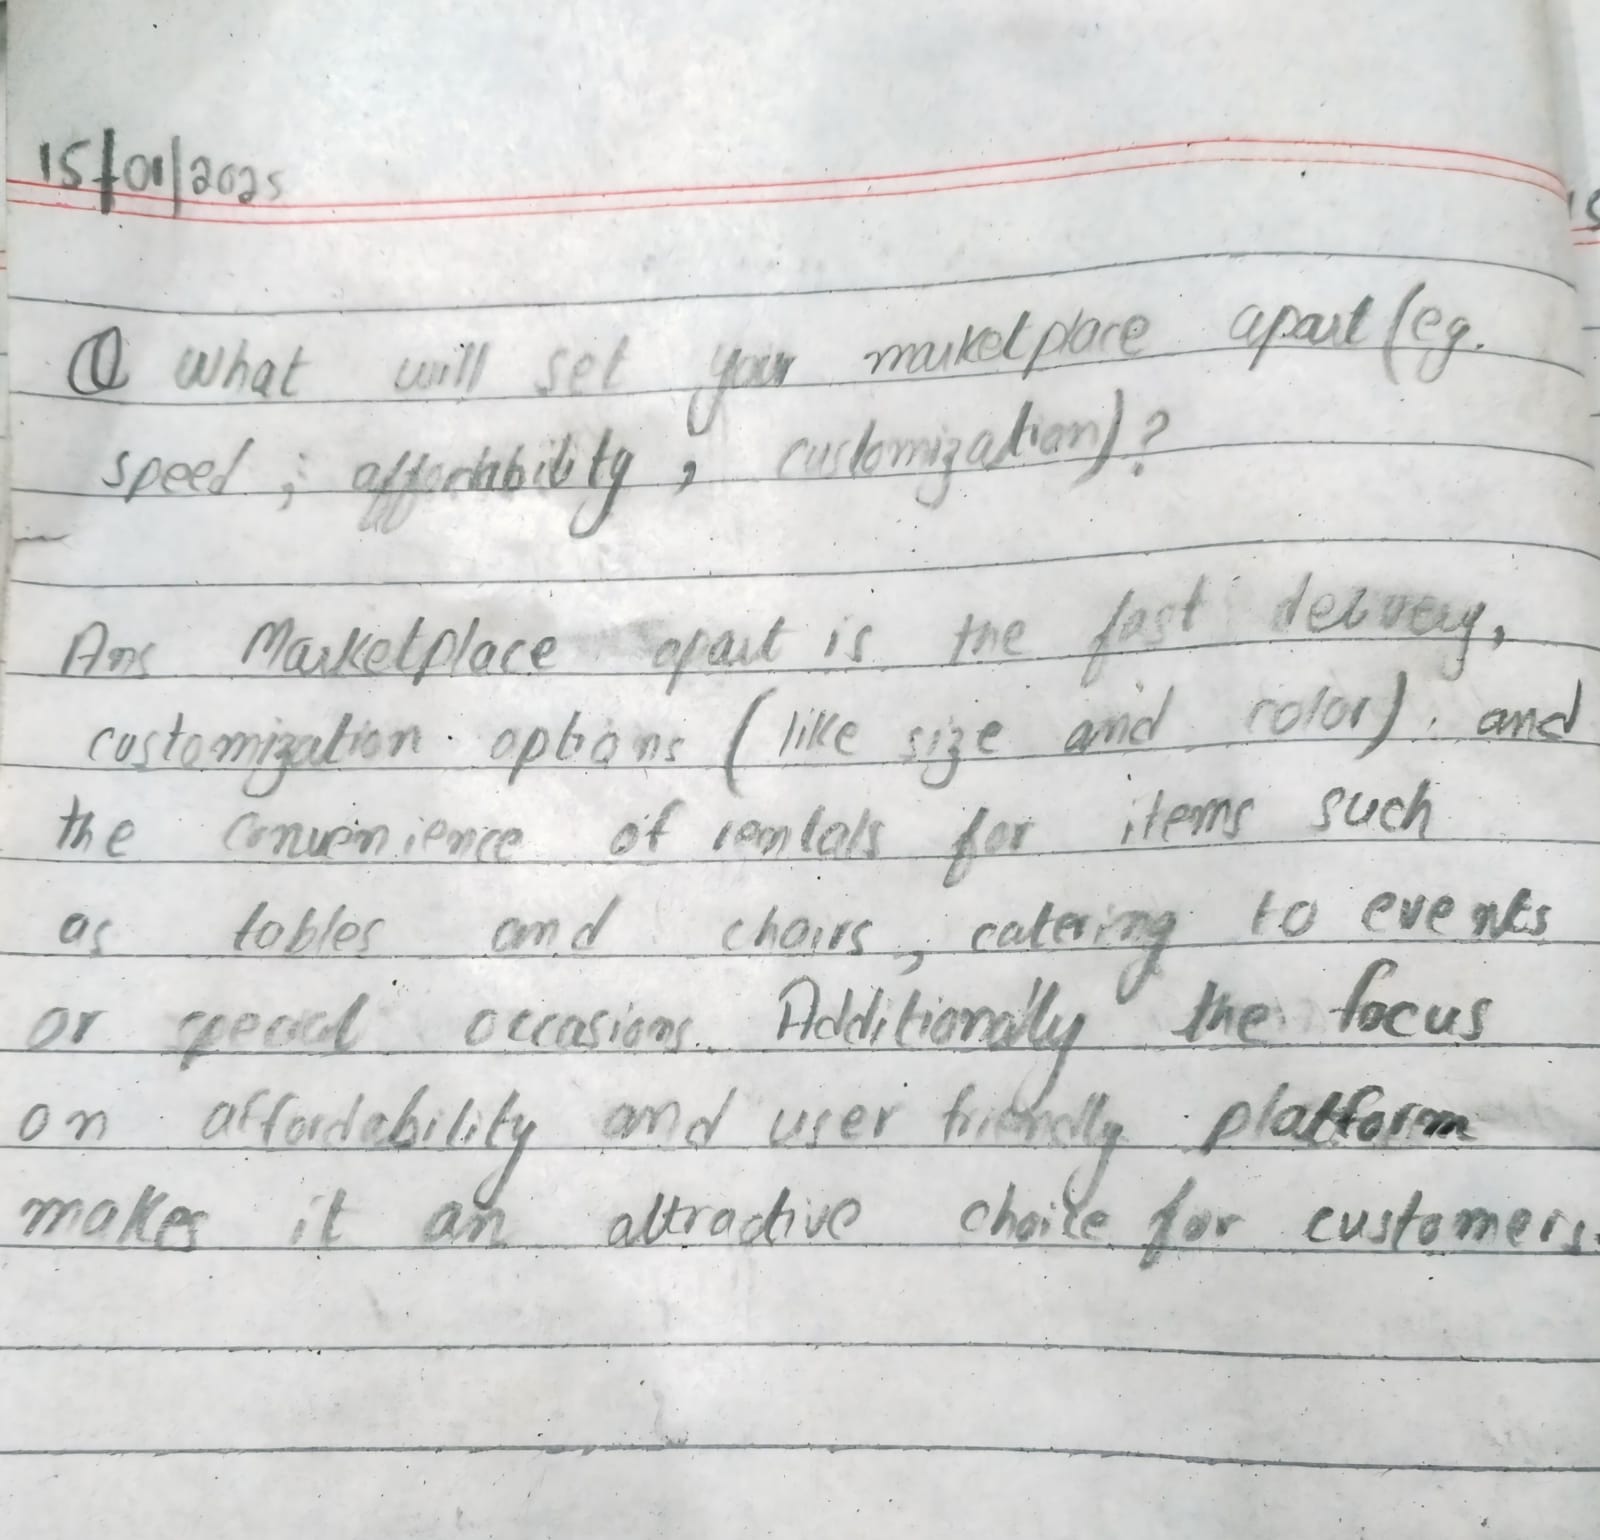 15/01/2025
Q What will set your marketplace apart (eg.
speed, affordability, customization)?
Ans Marketplace apart is the fast delivery,
customization options (like size and color), and
the convenience of rentals for items such
as tables and chairs, catering to events
or special occasions. Additionally the focus
on affordability and user friendly platform
makes it an attractive choice for customers.